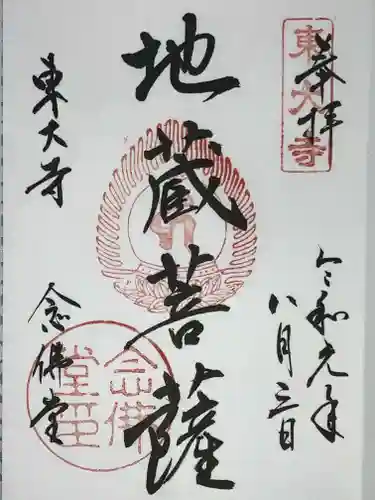 奉拝
東大寺
令和元年
八月三日
地蔵菩薩
東大寺
念佛堂
念佛堂印